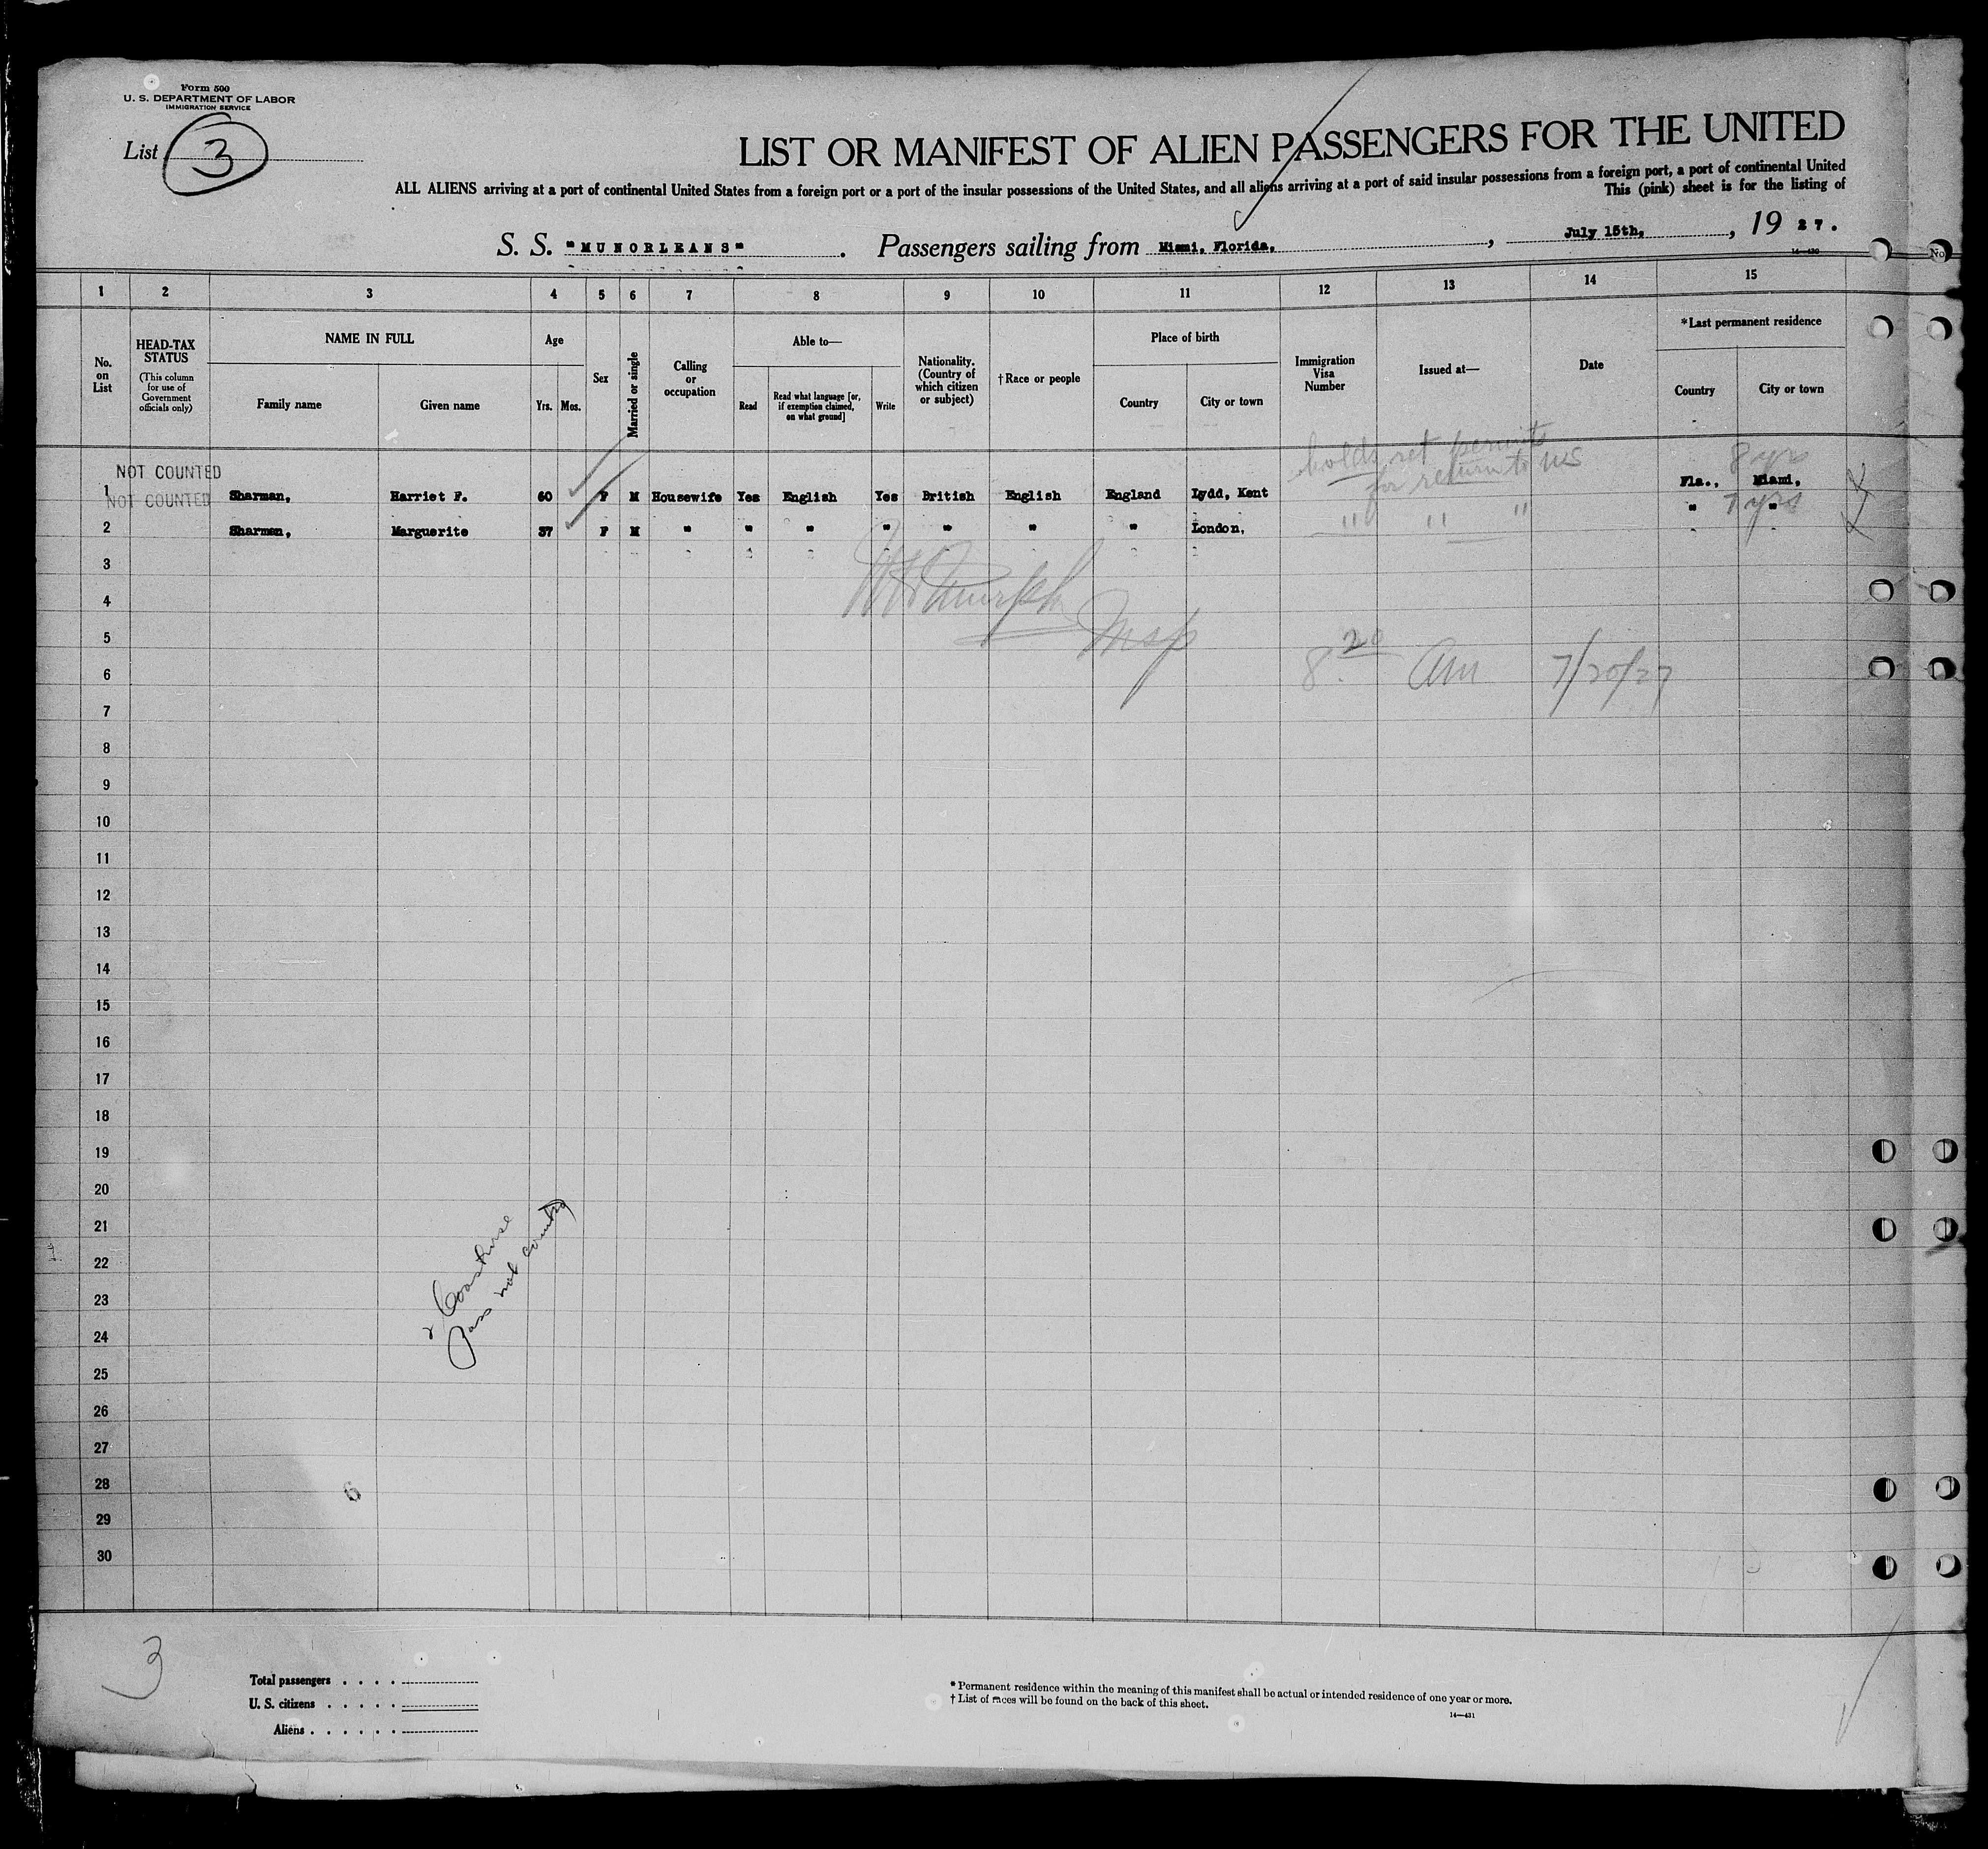 Form 500
U. S. DEPARTMENT OF LABOR
IMMIGRATION SERVICE
List 3
LIST OR MANIFEST OF ALIEN PASSENGERS FOR THE UNITED
ALL ALIENS arriving at a port of continental United States from a foreign port or a port of the insular possessions of the United States, and all aliens arriving at a port of said insular possessions from a foreign port, a port of continental United
This (pink) sheet is for the listing of
S. S. "MUNORLEANS". Passengers sailing from Miami, Florida, , July 15th, , 19 27.
14-430
No
1 2 3 4 5 6 7 8 9 10 11 12 13 14 15
No. on List
HEAD-TAX STATUS
(This column for use of Government officials only)
NAME IN FULL
Family name
Given name
Age
Yrs.
Mos.
Sex
Married or single
Calling or occupation
Able to—
Read
Read what language [or, if exemption claimed, on what ground]
Write
Nationality. (Country of which citizen or subject)
†Race or people
Place of birth
Country
City or town
Immigration Visa Number
Issued at—
Date
*Last permanent residence
Country
City or town
holds ret permits
for return to US
8 yrs
NOT COUNTED
NOT COUNTED
1 Sharman, Harriet F. 60 F M Housewife Yes English Yes British English England Lydd, Kent Fla., Miami,
7 yrs
2 Sharman, Marguerite 37 F M " " " " " " " London, " " " " "
3
4
5
Insp
6
8.20 Am 7/20/27
7
8
9
10
11
12
13
14
15
16
17
18
19
20
21
22
23
24
25
26
27
28
29
30
2 Coastwise
Pass not counted
6
3
Total passengers . . . .
U. S. citizens . . . . .
Aliens . . . . . .
* Permanent residence within the meaning of this manifest shall be actual or intended residence of one year or more.
† List of races will be found on the back of this sheet.
14—431